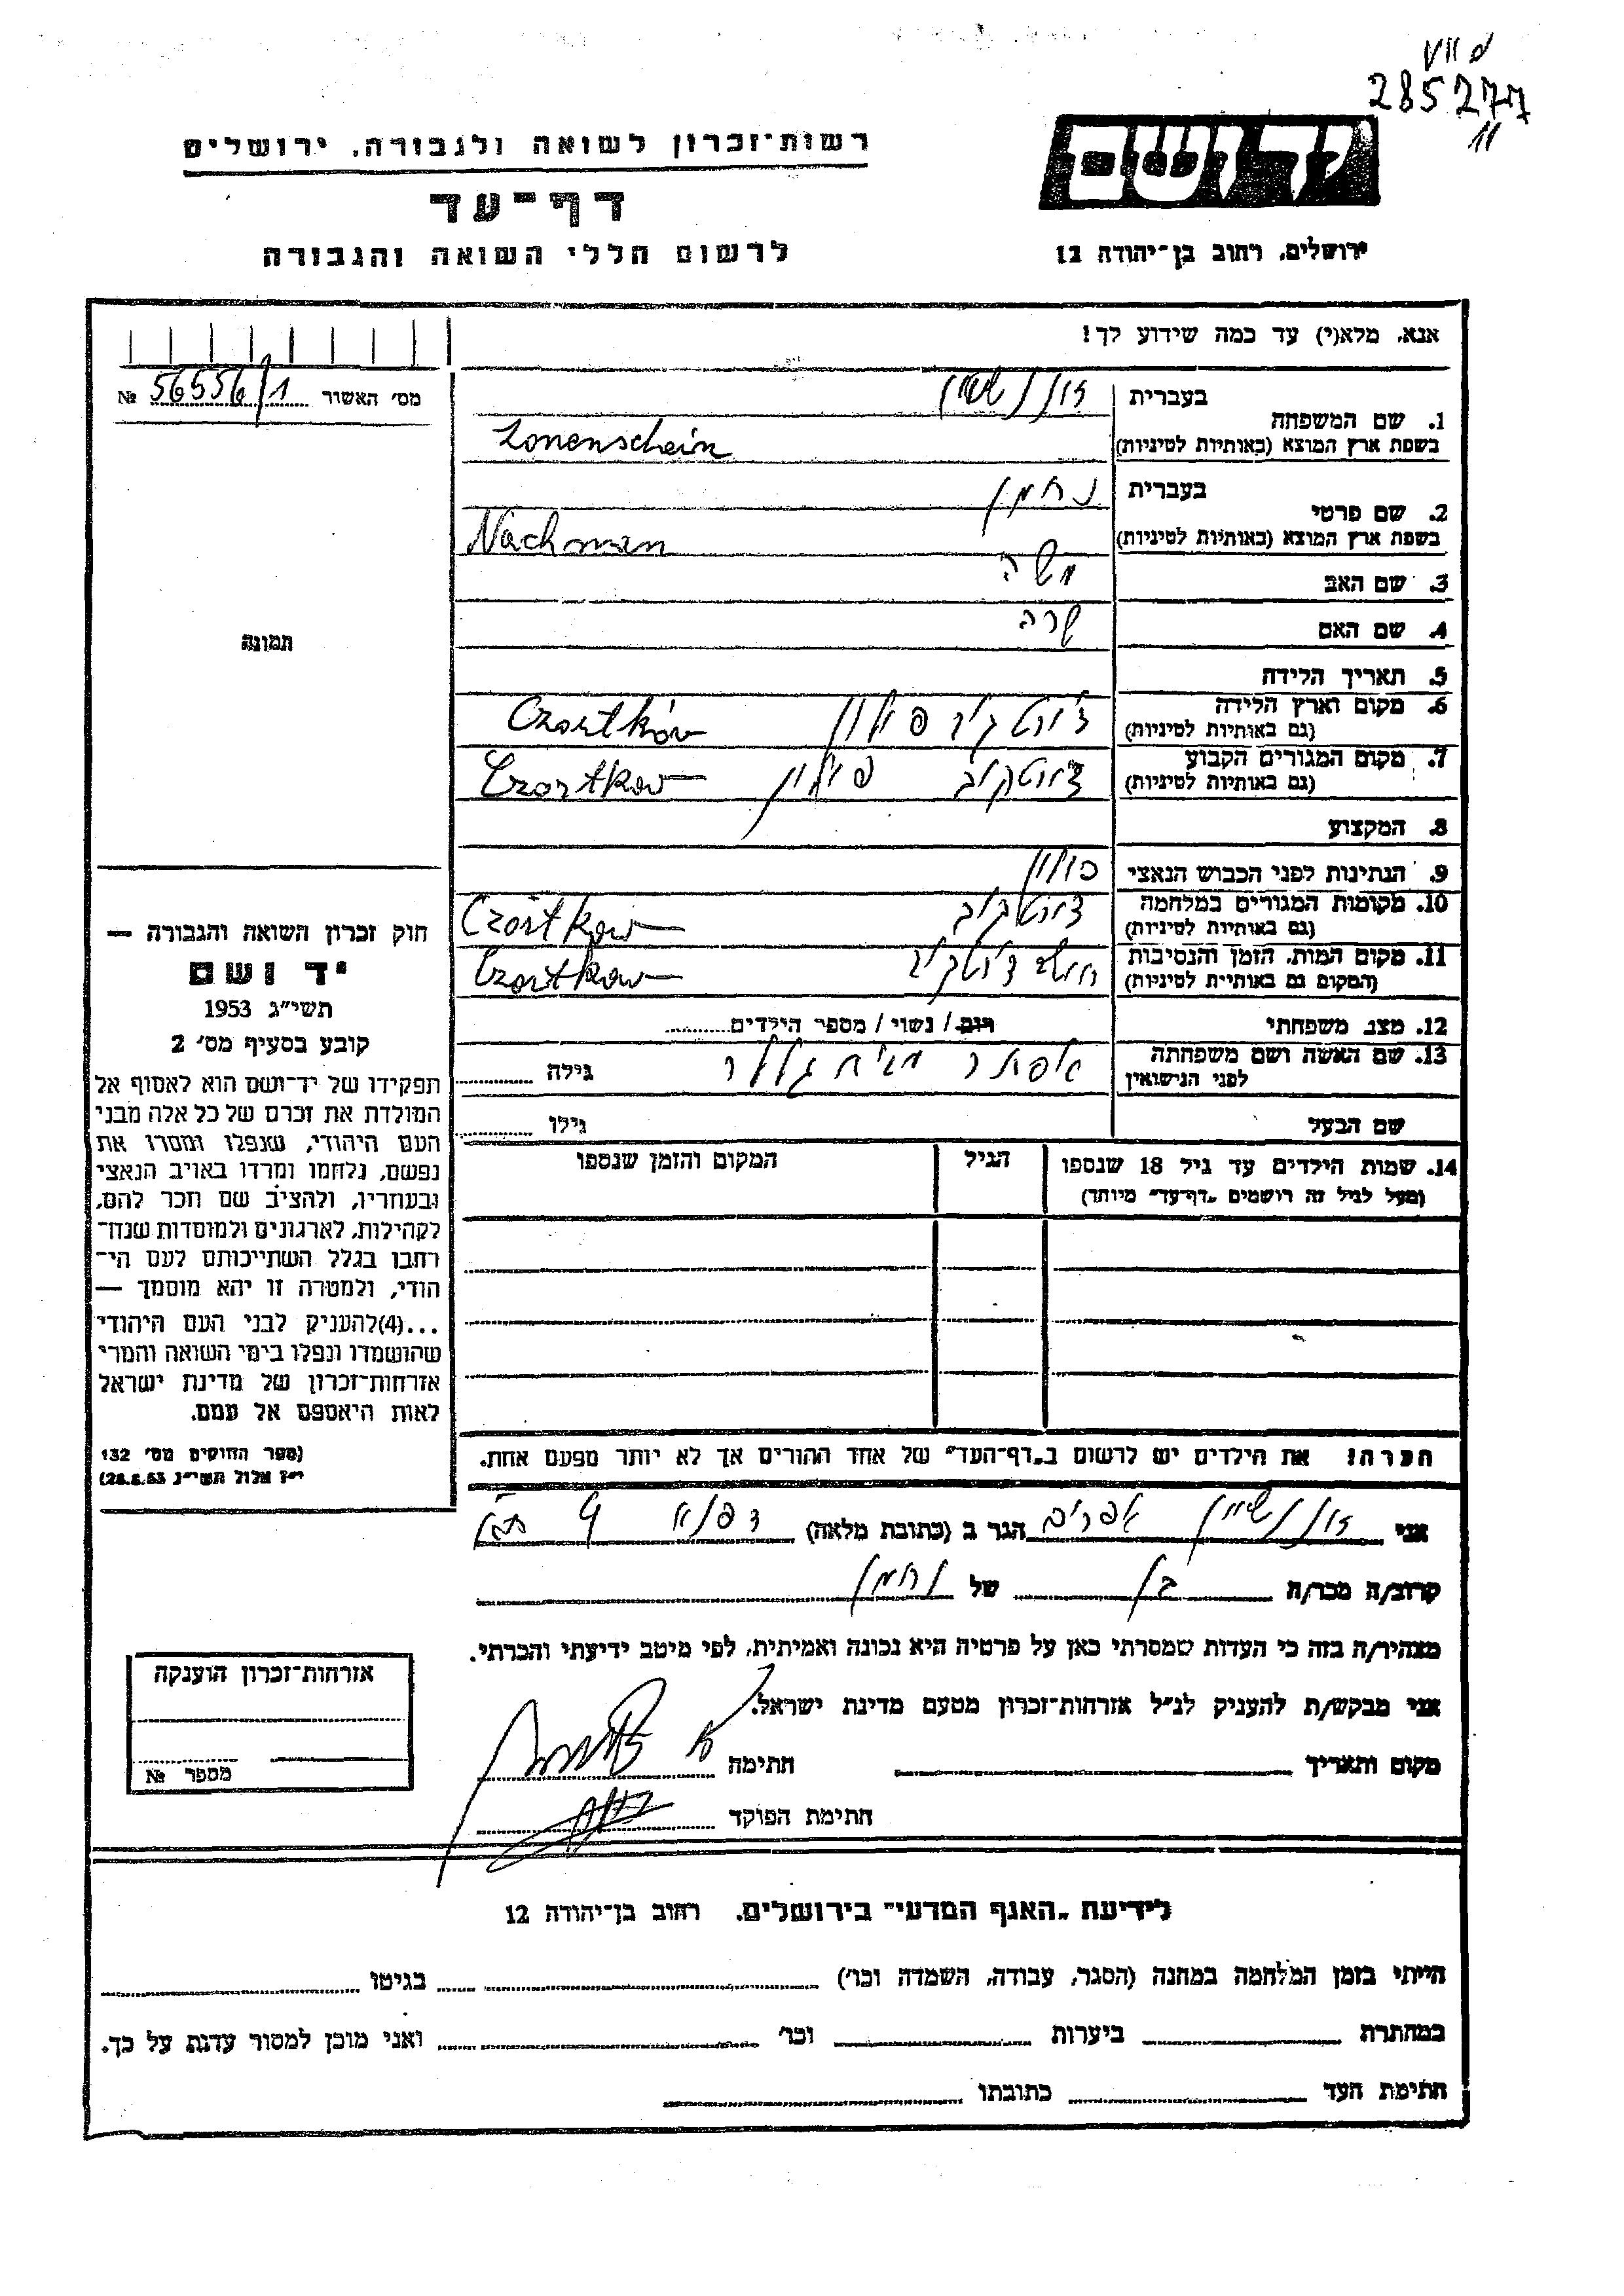 285277
11
רשות־זכרון לשואה ולגבורה, ירושלים
ידושם
דף־עד
לרשום חללי השואה והגבורה
ירושלים, רחוב בן־יהודה 12
אנא, מלא(י) עד כמה שידוע לך!
מס׳ האשור 56556/1 №
1. שם המשפחה
בעברית זוננשיין
בשפת ארץ המוצא (באותיות לטיניות) Zonenschein
2. שם פרטי
בעברית נחמן
בשפת ארץ המוצא (באותיות לטיניות) Nachman
3. שם האב משה
4. שם האם שרה
תמונה
5. תאריך הלידה
6. מקום וארץ הלידה צ׳ורטקוב פולין Czortków
(גם באותיות לטיניות)
7. מקום המגורים הקבוע צ׳ורטקוב פולין Czortkow
(גם באותיות לטיניות)
8. המקצוע
9. הנתינות לפני הכבוש הנאצי פולין
10. מקומות המגורים במלחמה צ׳ורטקוב Czortkow
(גם באותיות לטיניות)
11. מקום המות, הזמן והנסיבות צ׳ורטקוב Czortkow
(המקום גם באותיית לטיניות)
12. מצב משפחתי רוק / נשוי / מספר הילדים
13. שם האשה ושם משפחתה אסתר גלר גילה
לפני הנישואין
שם הבעל גילו
14. שמות הילדים עד גיל 18 שנספו הגיל המקום והזמן שנספו
(מעל לגיל זה רושמים „דף־עד״ מיוחד)
חוק זכרון השואה והגבורה —
יד ושם
תשי״ג 1953
קובע בסעיף מס׳ 2
תפקידו של יד־ושם הוא לאסוף אל
המולדת את זכרם של כל אלה מבני
העם היהודי, שנפלו ומסרו את
נפשם, נלחמו ומרדו באויב הנאצי
ובעוזריו, ולהציב שם וזכר להם,
לקהילות, לארגונים ולמוסדות שנח־
רבו בגלל השתייכותם לעם הי־
הודי, ולמטרה זו יהא מוסמך —
...(4)להעניק לבני העם היהודי
שהושמדו ונפלו בימי השואה והמרי
אזרחות־זכרון של מדינת ישראל
לאות היאספם אל עמם.
(ספר החוקים מס׳ 132
י״ז אלול תשי״ג 28.8.53)
הערה! את הילדים יש לרשום ב„דף־העד״ של אחד ההורים אך לא יותר מפעם אחת.
אני זוננשיין אפרים הגר ב (כתובת מלאה) 9
קרוב/ה מכר/ה בן של נחמן
מצהיר/ה בזה כי העדות שמסרתי כאן על פרטיה היא נכונה ואמיתית, לפי מיטב ידיעתי והכרתי.
אני מבקש/ת להעניק לנ״ל אזרחות־זכרון מטעם מדינת ישראל.
מקום ותאריך חתימה
חתימת הפוקד
אזרחות־זכרון הוענקה
מספר №
לידיעת „האגף המדעי״ בירושלים, רחוב בן־יהודה 12
הייתי בזמן המלחמה במחנה (הסגר, עבודה, השמדה וכו׳) בגיטו
במחתרת ביערות וכו׳ ואני מוכן למסור עדות על כך.
חתימת העד כתובתו